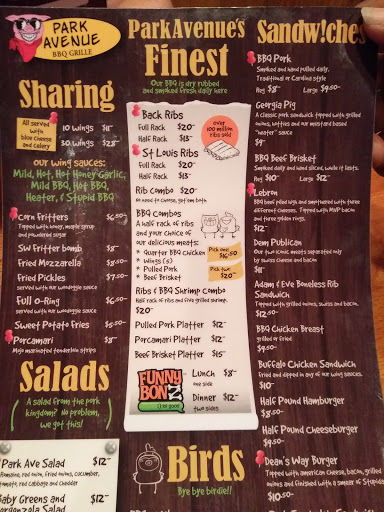 PARK
AVENUE
BBQ GRILLE
Sharing
All served
with
blue cheese
and celery
10 wings $11~
30 wings $28~
our wing sauces:
Mild, Hot, Hot Honey Garlic,
Mild BBQ, Hot BBQ,
Heater, & Stupid BBQ
Corn Fritters $6.50~
Topped with honey, maple syrup
and powdered sugar
SW Fritter bomb $8~
Fried Mozzarella $8.50~
Fried Pickles $7.50~
served with our woowggie sauce
Full O-Ring $6.50~
served with our woowggie sauce
Sweet Potato Fries $5.50~
Porcamari $8~
Mojo marinated tenderloin strips
Salads
A salad from the pork
kingdom? No problem,
we got this!
Park Ave Salad $12~
Romaine, red onion, fried onions, cucumber,
tomato, red cabbage and Cheddar
Baby Greens and $12~
Gorgonzola Salad
ParkAvenue's
Finest
Our BBQ is dry rubbed
and smoked fresh daily here
Back Ribs
Full Rack $20~
Half Rack $13~
over
100 million
ribs sold
St Louis Ribs
Full Rack $20~
Half Rack $13~
Rib Combo $20~
No need to choose, get'em both
BBQ Combos
A half rack of ribs
and your choice of
our delicious meats:
* Quarter BBQ Chicken
* Wings (5)
* Pulled Pork
* Beef Brisket
Pick one:
$16.50
Pick two:
$20~
Ribs & BBQ Shrimp Combo
Half rack of ribs and five grilled shrimp.
$20~
Pulled Pork Platter $12~
Porcamari Platter $12~
Beef Brisket Platter $15~
FUNNY
BONZ
Lunch $8~
one side
Dinner $12~
two sides
Birds
Bye bye birdie!!
Sandw!ches
BBQ Pork
Smoked and hand pulled daily,
Traditional or Carolina style
Reg $8~ Large $9.50~
Georgia Pig
A classic pork sandwich topped with grilled
onions, waffles and our mustard based
"heater" sauce
$9~
BBQ Beef Brisket
Smoked daily and hand sliced, while it lasts.
Reg $10~ Large $12~
Lebron
BBQ beef piled high and smothered with three
different cheeses. Topped with MVP bacon
and three golden rings.
$12~
Dem Publican
Our two iconic meats separated only
by swiss cheese and bacon
$11~
Adam & Eve Boneless Rib
Sandwich
Topped with grilled onions, swiss and bacon.
$12.50~
BBQ Chicken Breast
grilled or fried
$9.50~
Buffalo Chicken Sandwich
Fried and dipped in any of our wing sauces.
$10~
Half Pound Hamburger
$8.50~
Half Pound Cheeseburger
$9.50~
Dean's Way Burger
Topped with american cheese, bacon, grilled
onions and finished with a smear of Stupid
$10.50~